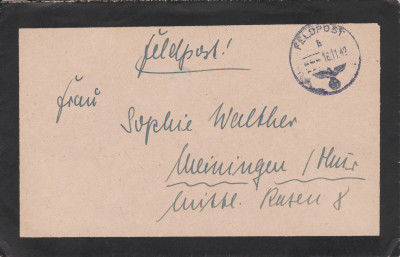 Feldpost!
FELDPOST
b
16.11.42
Frau
Sophie Walther
Meiningen / Thür
Mittl. Rasen 8